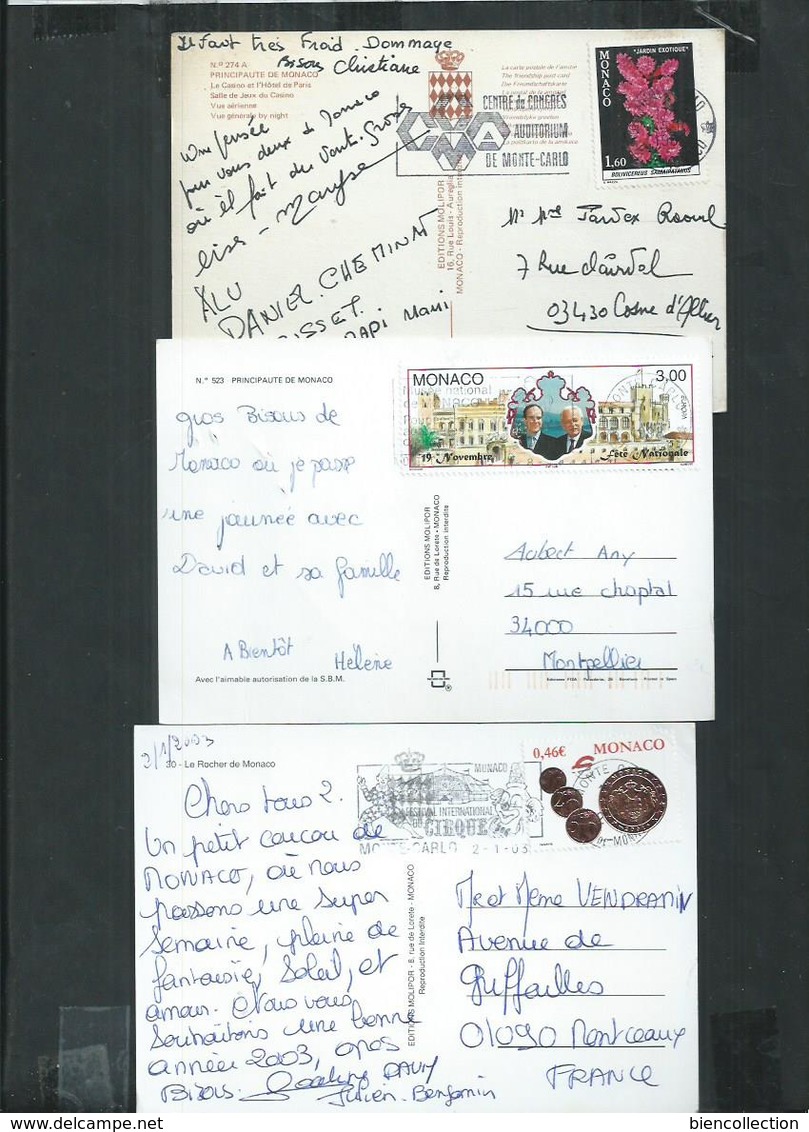 Il fait très Froid. Dommage
Bisous Christiane
N.º 274 A
PRINCIPAUTE DE MONACO
Le Casino et l'Hôtel de Paris
Salle de Jeux du Casino
Vue aérienne
Vue générale by night
Une pensée
pour vous deux de Monaco
où il fait du vent. Grosses
bises - Maryse
ALU
DANIEL. CHEMINAT
PAPI Mami
La carte postale de l'amitié
The friendship post card
Die Freundschaftskarte
CENTRE de CONGRES
AUDITORIUM
DE MONTE-CARLO
EDITIONS MOLIPOR
MONACO - Reproduction interdite
"JARDIN EXOTIQUE"
MONACO
1,60
7 Rue
03430 Cosne d'Allier
N.º 523 PRINCIPAUTE DE MONACO
gros Bisous de
Monaco où je passe
une journée avec
David et sa famille
A Bientôt Hélène
Avec l'aimable autorisation de la S.B.M.
EDITIONS MOLIPOR
8, Rue de Lorete - MONACO
Reproduction interdite
MONACO 3,00
EUROPA
19 Novembre Fête Nationale
Musée national
MONACO
Aubert Any
15 rue chaptal
34000
Montpellier
2/1/2003
30 - Le Rocher de Monaco
Chers tous 2.
Un petit coucou de
MONACO, où nous
passons une super
semaine, pleine de
fantaisie, Soleil, et
amour. Nous vous
souhaitons une bonne
année 2003, gros
Bisous.
Julien. Benjamin
EDITIONS MOLIPOR - 8, rue de Lorete - MONACO
Reproduction Interdite
MONACO
FESTIVAL INTERNATIONAL
DU
CIRQUE
MONTE-CARLO 2-1-03
0,46€ MONACO
Mr et Mme VENDRAMIN
Avenue de
01090 Montceaux
FRANCE
biencollection